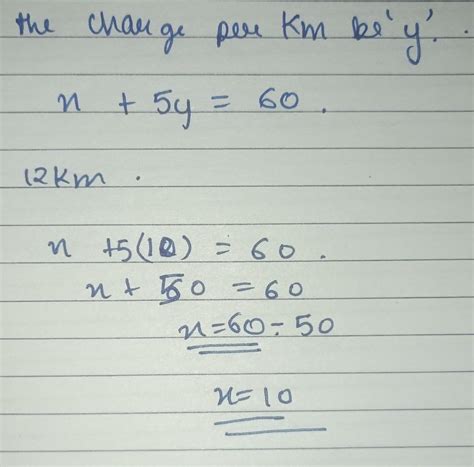 the charge per Km be 'y'.
x + 5y = 60.
12Km.
x + 5(10) = 60.
x + 50 = 60
x = 60 - 50
x = 10